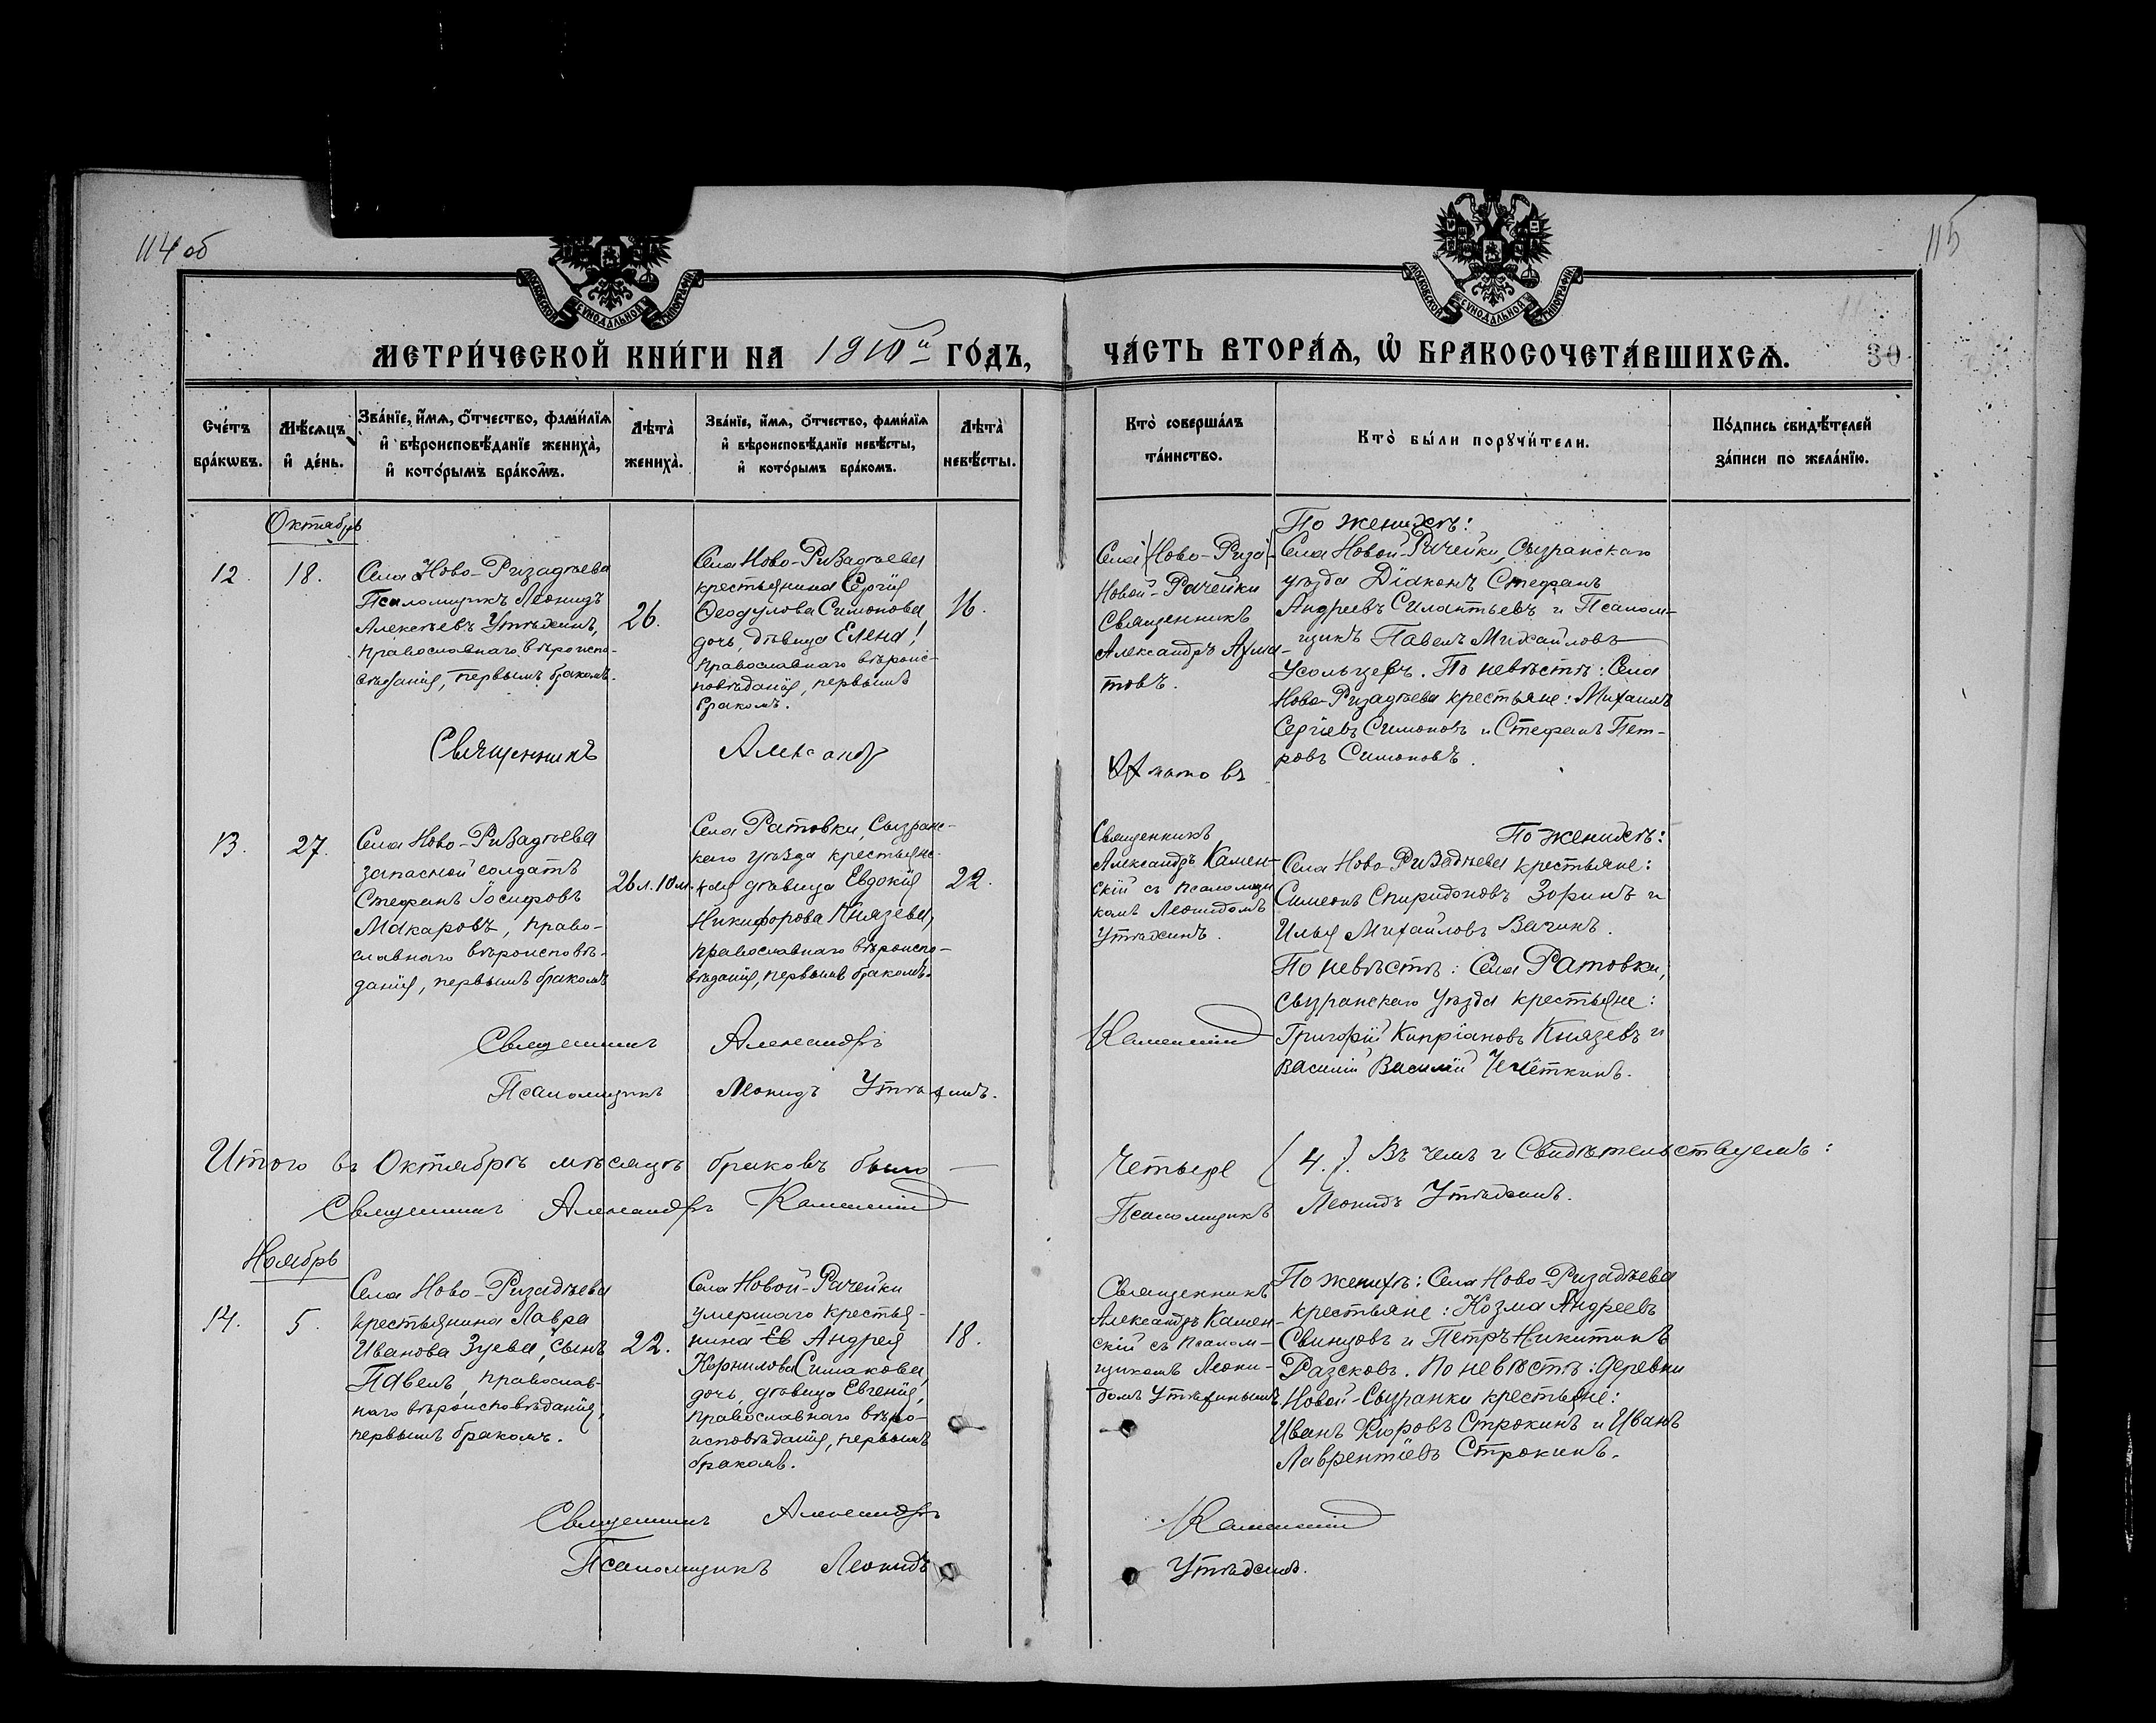 114 об
115
МОСКОВСКОЙ СѴНОДАЛЬНОЙ ТИПОГРАФІИ
МОСКОВСКОЙ СѴНОДАЛЬНОЙ ТИПОГРАФІИ
МЕТРИ́ЧЕСКОЙ КНИ́ГИ НА 1910й ГО́ДЪ,
ЧА́СТЬ ВТОРА́Ѧ, Ѽ БРАКОСОЧЕТА́ВШИХСѦ.
30
Сче́тъ
бра́кѡвъ.
Мѣ́сѧцъ
и҆ де́нь.
Зва́нїе, и҆́мѧ, ѻ҆́тчество, фами́лїѧ
и҆ вѣроисповѣ́данїе жениха̀,
и҆ кото́рымъ бра́комъ.
Лѣта̀
жениха̀.
Зва́нїе, и҆́мѧ, ѻ҆́тчество, фами́лїѧ
и҆ вѣроисповѣ́данїе невѣ́сты,
и҆ кото́рымъ бра́комъ.
Лѣта̀
невѣ́сты.
Кто̀ соверша́лъ
та́инство.
Кто̀ бы́ли порꙋчи́тели.
По́дпись свидѣ́телей
за́писи по жела́нїю.
Октябрь
12.
18.
Села Ново-Ризадѣева
Псаломщикъ Леонидъ
Алексѣевъ Утѣхинъ,
православнаго вѣроиспо-
вѣданія, первымъ бракомъ.
26.
Села Ново-Ризадѣева
крестьянина Сергія
Ѳеодулова Симонова
дочь, дѣвица Елена!
православнаго вѣроис-
повѣданія, первымъ
бракомъ.
16.
Села (Ново-Риза)
Новой-Рачейки
Священникъ
Александръ Ахма-
товъ.
По женихѣ:
Села Новой-Рачейки, Сызранскаго
уѣзда Діаконъ Стефанъ
Андреевъ Силантьевъ и Псалом-
щикъ Павелъ Михайловъ
Усольцевъ. По невѣстѣ: Села
Ново-Ризадѣева крестьяне: Михаилъ
Сергіевъ Симоновъ и Стефанъ Пет-
ровъ Симоновъ.
Священникъ Александръ Ахматовъ
13.
27.
Села Ново-Ризадѣева
запасной солдатъ
Стефанъ Іосифовъ
Макаровъ, право-
славнаго вѣроисповѣ-
данія, первымъ бракомъ
26 л. 10 м.
Села Ратовки, Сызранс-
каго уѣзда крестьянс-
кая дѣвица Евдокія
Никифорова Князева,
православнаго вѣроиспо-
вѣданія, первымъ бракомъ.
22.
Священникъ
Александръ Камен-
скій съ псаломщи
комъ Леонидомъ
Утѣхинъ.
По женихѣ:
Села Ново-Ризадѣева крестьяне:
Симеонъ Спиридоновъ Зоринъ и
Илья Михайловъ Вагинъ.
По невѣстѣ: Села Ратовки,
Сызранскаго уѣзда крестьяне:
Григорій Кипріановъ Князевъ и
Василій Василій
Священникъ Александръ Каменскій
Псаломщикъ Леонидъ Утѣхинъ.
Итого въ Октябрѣ мѣсяцѣ браковъ было — Четыре (4.). Въ чемъ и Свидѣтельствуемъ:
Священникъ Александръ Каменскій Псаломщикъ Леонидъ Утѣхинъ.
Ноябрь
14.
5.
Села Ново-Ризадѣева
крестьянина Лавра
Иванова Зуева, сынъ
Павелъ, православ-
наго вѣроисповѣданія,
первымъ бракомъ.
22.
Села Новой-Рачейки
умершаго крестья-
нина Ев Андрея
Корнилова Симакова,
дочь, дѣвица Евгенія,
православнаго вѣро-
исповѣданія, первымъ
бракомъ.
18.
Священникъ
Александръ Камен-
скій съ псалом-
щикомъ Леони-
домъ Утѣхинымъ.
По женихѣ: Села Ново-Ризадѣева
крестьяне: Козма Андреевъ
Свинцовъ и Петръ Никитинъ
Разсковъ. По невѣстѣ: деревни
Новой-Сызранки крестьяне:
Иванъ Строкинъ и Иванъ
Лаврентіевъ Строкинъ.
Священникъ Александръ Каменскій
Псаломщикъ Леонидъ Утѣхинъ.